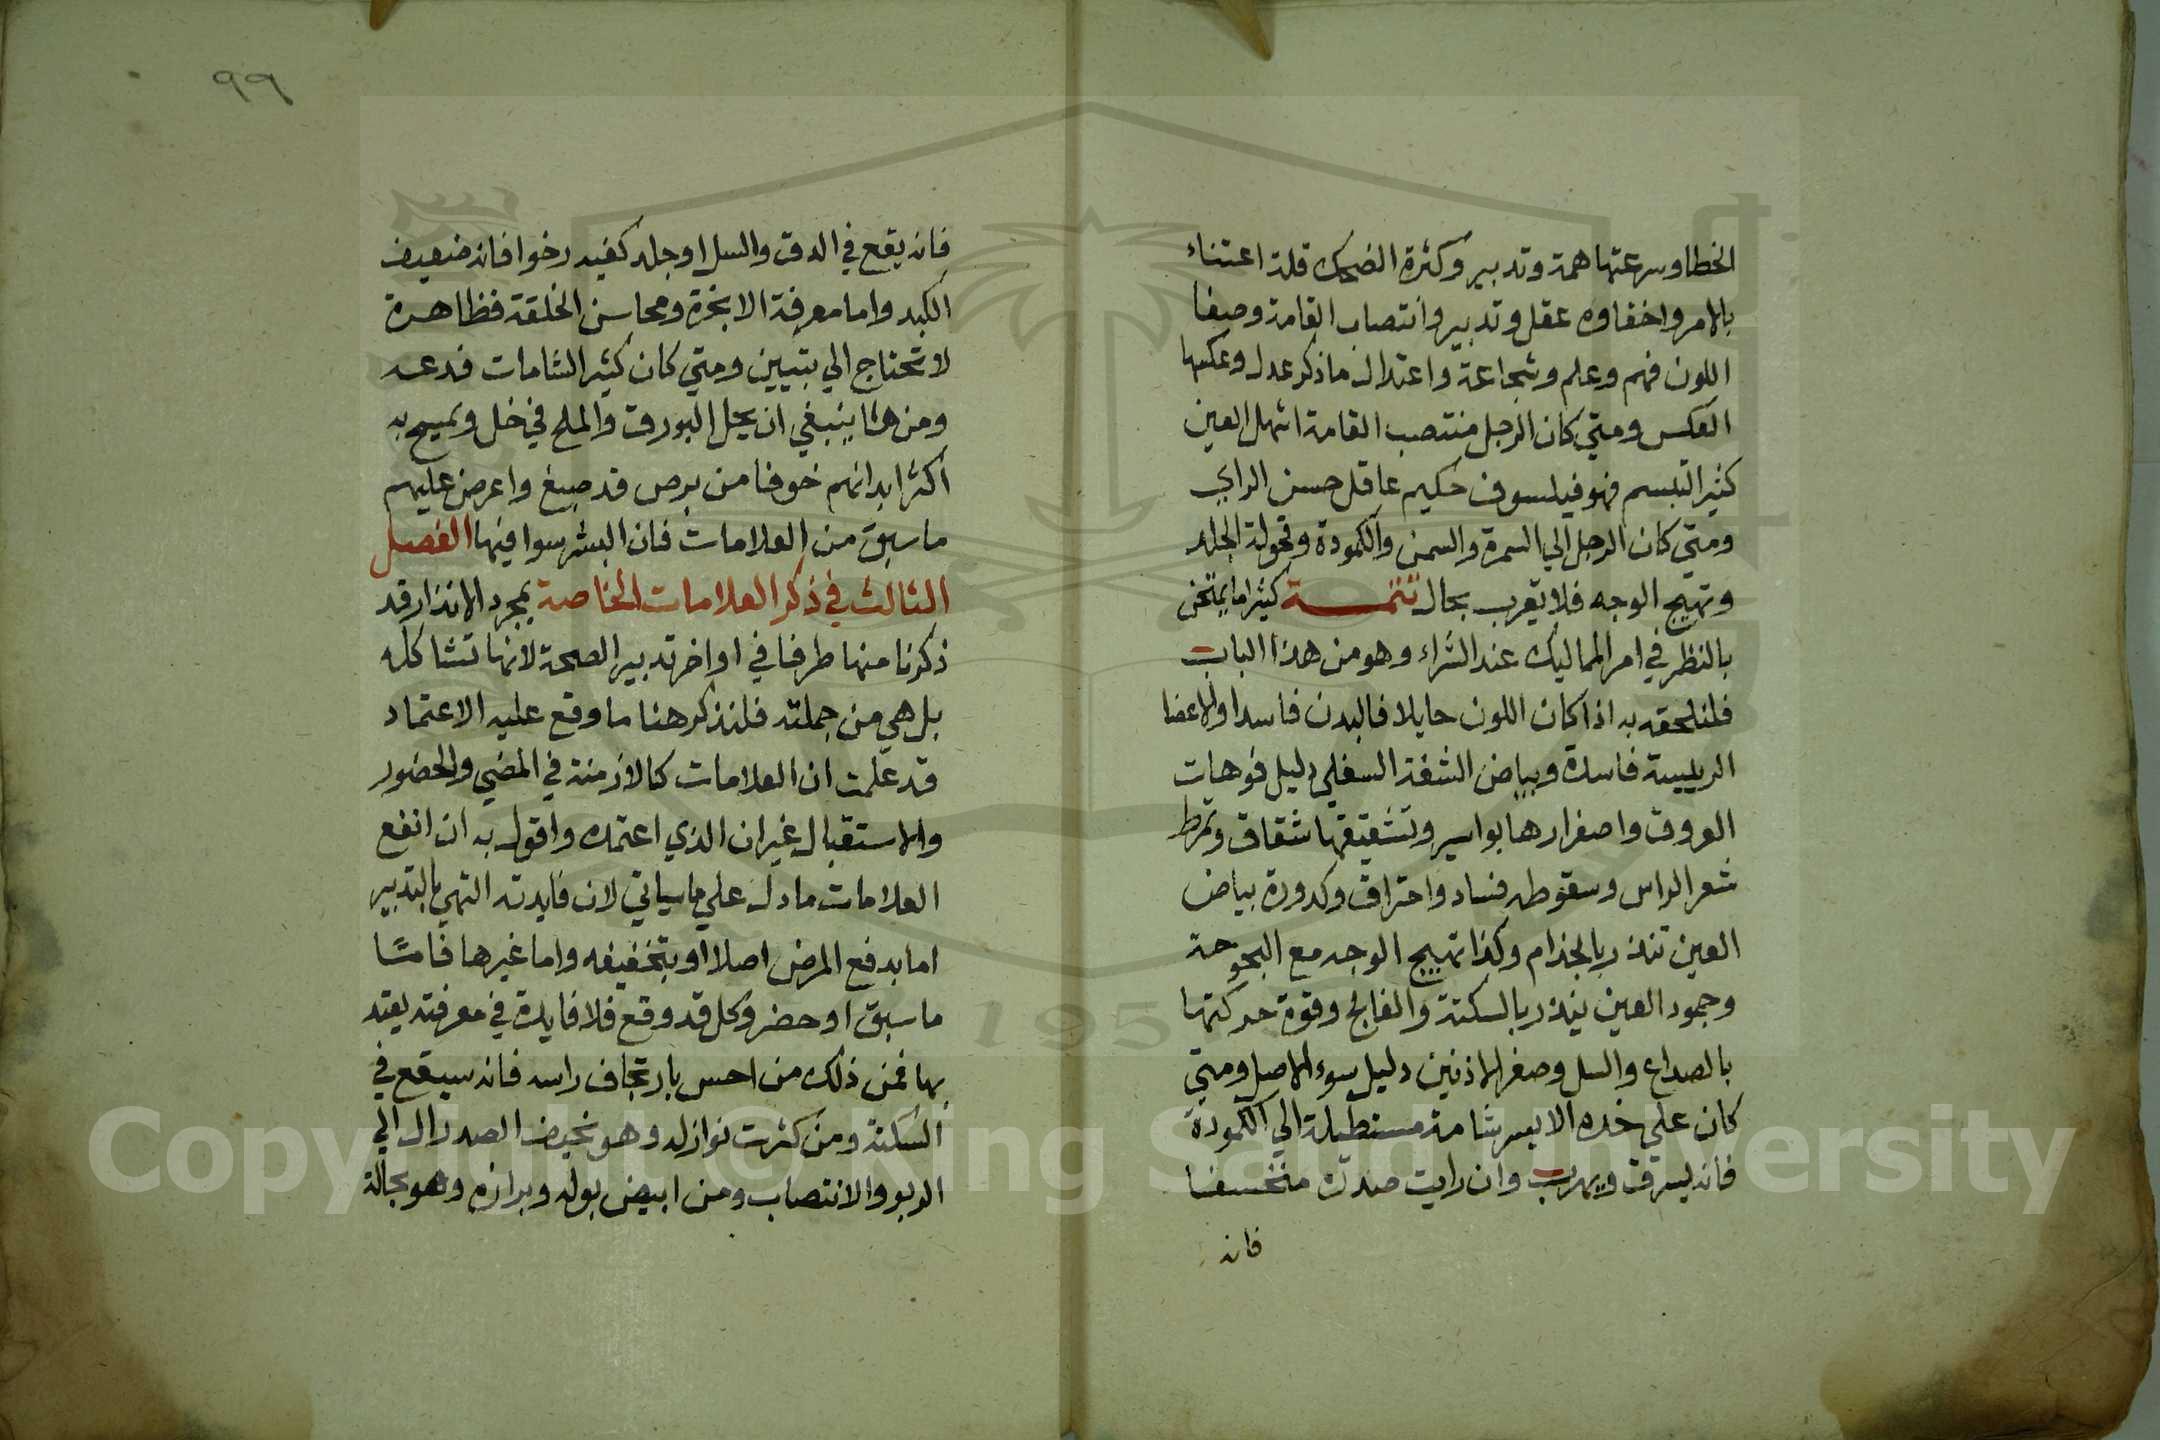 الخطا وسرعتها همة وتدبير وكثرة الضحك قلة اعتناء
بالامر واخفاوه عقل وتدبير وانتصاب القامة وصفا
اللون فهم وعلم وشجاعة واعتدال ما ذكر عدل وعكسها
العكس ومتي كان الرجل منتصب القامة اشهل العين
كثير التبسم فهو فيلسوف حكيم عاقل حسن الراي
ومتي كان الرجل الي السمرة والسمن والكمودة وقحولة الجلد
وتهيج الوجه فلا يقرب بحال تتمة كثيرا ما يمتحن
بالنظر في امر المماليك عند الشراء وهو من هذا الباب
فلنلحقه به اذا كان اللون حايلا فالبدن فاسد او الاعضا
الرييسة فاسدة وبياض الشفة السفلي دليل فوهات
العروق واصفرارها بواسير وتشقيقها شقاق وتمرط
شعر الراس وسقوطه فساد واحتراق وكدورة بياض
العين تنذر بالجذام وكذا تهييج الوجه مع البحوحة
وجمود العين ينذر بالسكتة والفالج وقوة حركتها
بالصداع والسل وصغر الاذنين دليل سوء الاصل ومتي
كان علي خده الايسر شامة مستطيلة الي الكمودة
فانه يسرق ويهرب وان رايت صدره منخسفا
فانه
٩٩
فانه يقع في الدق والسل او جلد كفيه رخوا فانه ضعيف
الكبد واما معرفة الابخرة ومحاسن الخلقة فظاهرة
لا تحتاج الي تبيين ومتي كان كثير الشامات فدعه
ومن هنا ينبغي ان يحل البورق والملح في خل ويمسح به
اكثر ابدانهم خوفا من برص قد صبغ واعرض عليهم
ما سبق من العلامات فان البشر سوا فيها الفصل
الثالث في ذكر العلامات الخاصة بمجرد الانذار قد
ذكرنا منها طرفا في اواخر تدبير الصحة لانها تشاكله
بل هي من جملته فلنذكر هنا ما وقع عليه الاعتماد
قد علمت ان العلامات كالازمنة في المضي والحضور
والاستقبال غير ان الذي اعتمده واقول به ان انفع
العلامات ما دل علي ما سياتي لان فايدته التهي بالتدبير
اما بدفع المرض اصلا او بتخفيفه واما غيرها فامّا
ما سبق او حضر وكل قد وقع فلا فايدة في معرفته يعتد
بها فمن ذلك من احس بارتجاف راسه فانه سيقع في
السكتة ومن كثرت نوازله وهو نحيف الصدر ال الي
الربو والانتصاب ومن ابيض بوله وبرازه وهو بحالة
Copyright © King Saud University
195